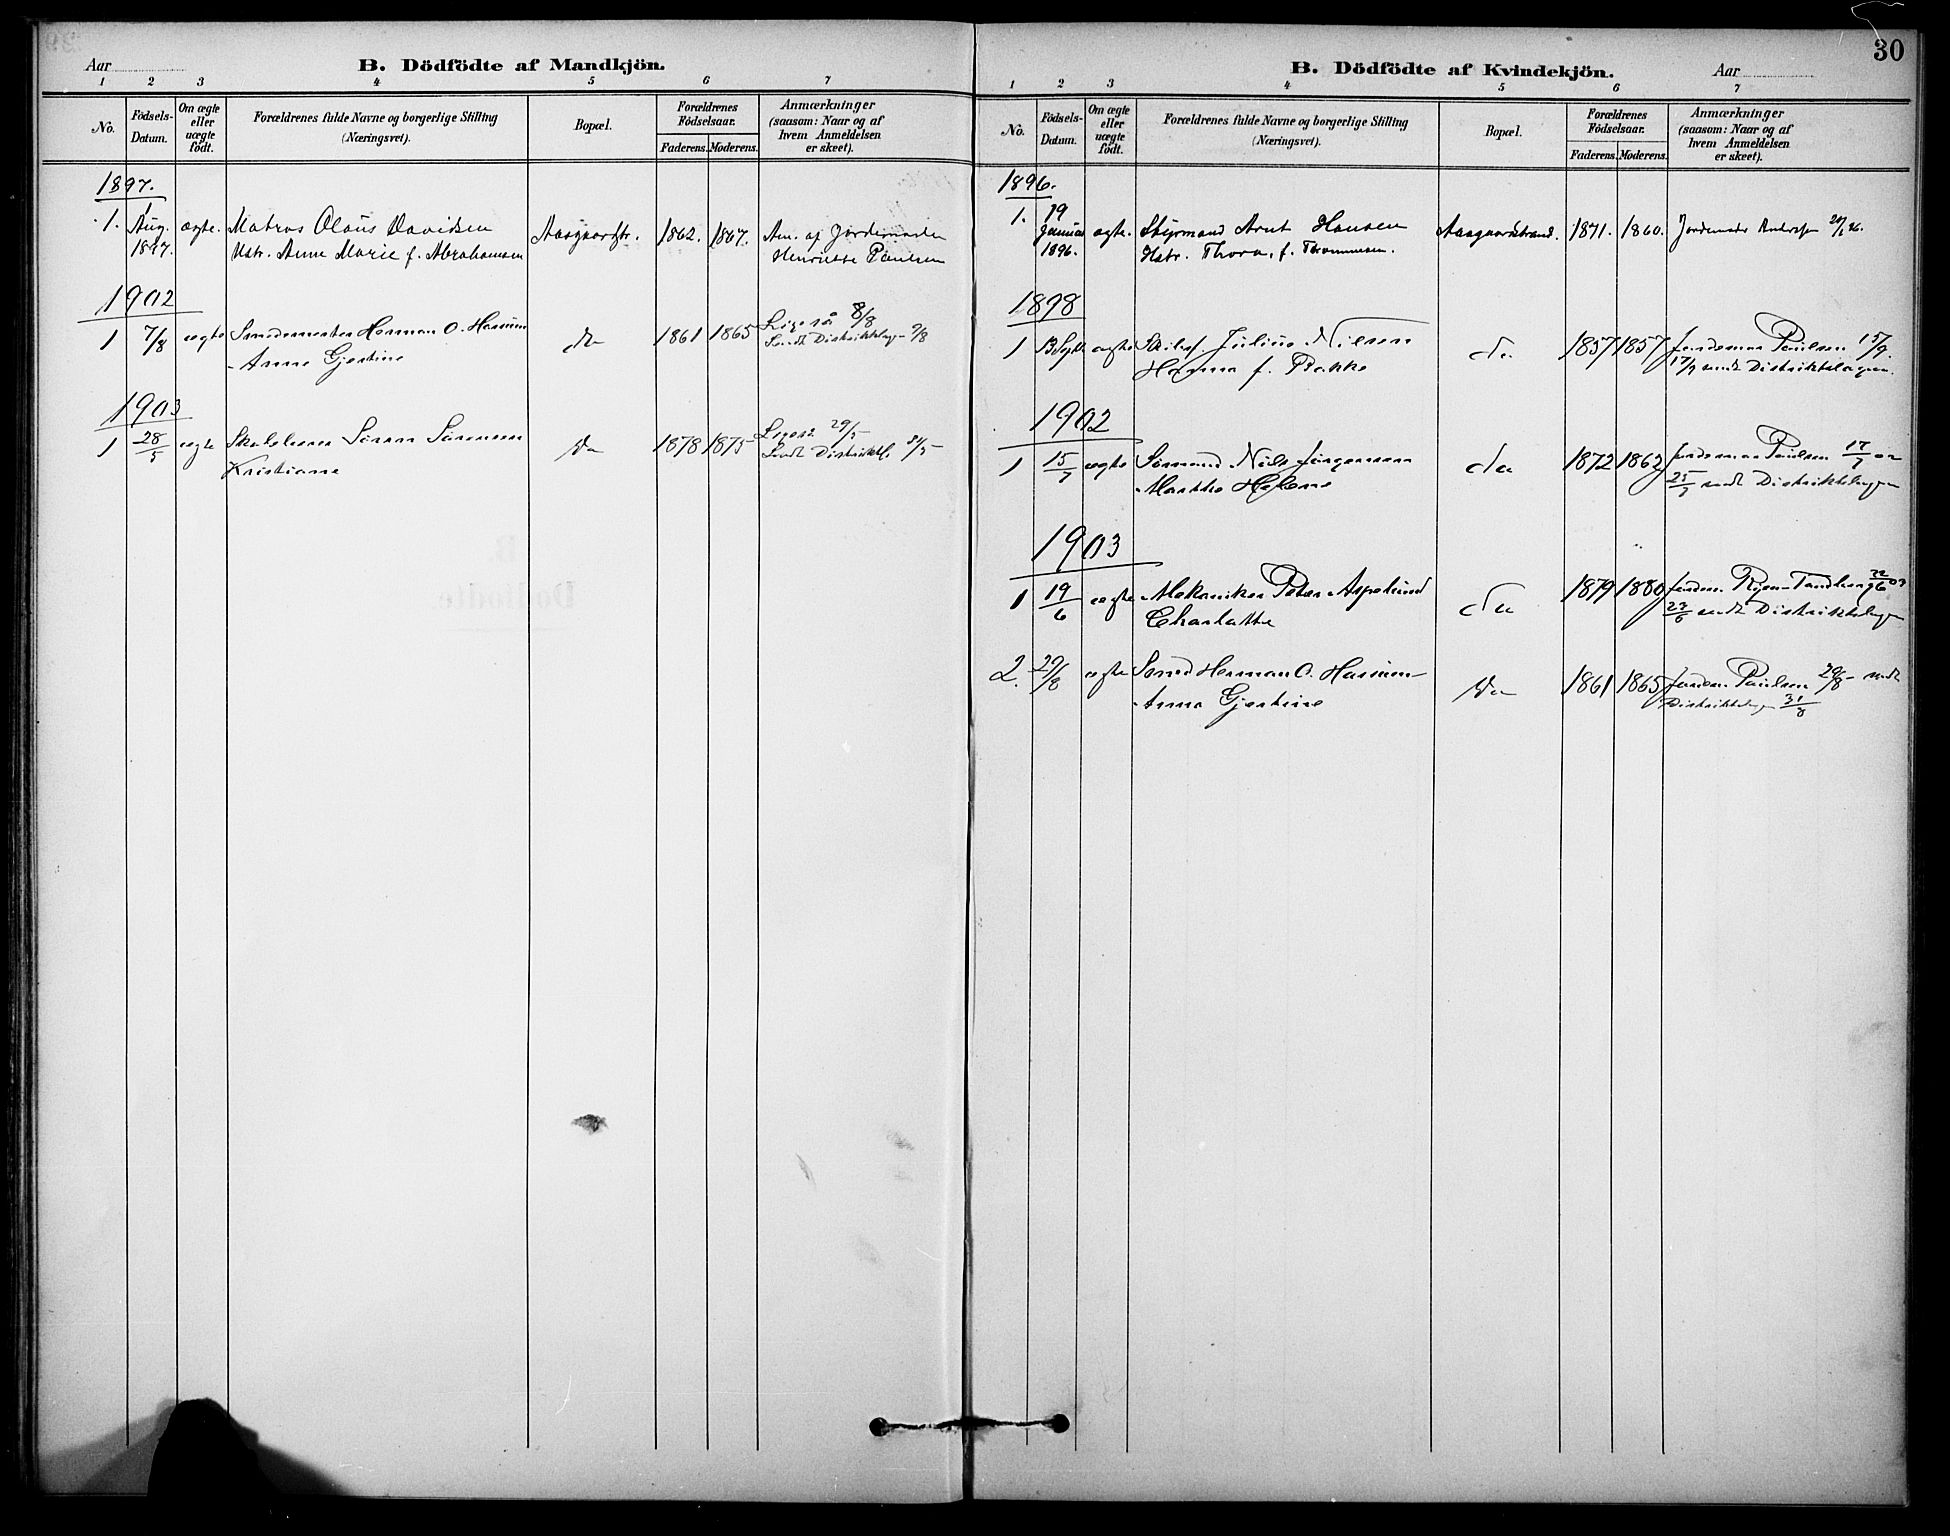 Aar
B. Dödfödte af Mandkjön.
1 2 3 4 5 6 7
No.
Födsels-
Datum.
Om ægte
eller
uægte
födt.
Forældrenes fulde Navne og borgerlige Stilling
(Næringsvei).
Bopæl.
Forældrenes
Födselsaar.
Faderens. Moderens.
Anmærkninger
(saasom: Naar og af
hvem Anmeldelsen
er skeet).
1897.
1. Aug. ægte. Matros Olaus Davidsen Aasgaardstr. 1862. 1867. Anm. af Jordemoder
1897. Hstr. Anne Marie f. Abrahamsen Henriette Paulsen
1902
1 7/8 ægte Smedemester Herman O. do 1861 1865 Ligeså 8/8
Anna Gjestine Sendt 9/8
1903
1 28/5 ægte Søren Sørensen Do 1878 1875 Ligeså 29/5
Kristiane Sendt Distriktsl. 31/5
30
B. Dödfödte af Kvindekjön.
Aar
1 2 3 4 5 6 7
No.
Födsels-
Datum.
Om ægte
eller
uægte
födt.
Forældrenes fulde Navne og borgerlige Stilling
(Næringsvei).
Bopæl.
Forældrenes
Födselsaar.
Faderens. Moderens.
Anmærkninger
(saasom: Naar og af
hvem Anmeldelsen
er skeet).
1896.
1. 19 Januar ægte. Styrmand Arnt Hansen Aasgaardstrand. 1871. 1860. Jordemoder
1896. Hstr. Thora, f. Thommesen.
1898
1 13 Septbr ægte Julius Nilsen do 1857 1857 Jordemor Paulsen 15/9.
Hanna f. Bakke 17/9 sendt Distriktslægen.
1902
1 15/7 ægte Sømand Nils Jørgensen do 1872 1862 Jordemor Paulsen 17/7
Marthe Helene 25/7 sendt Distriktslægen
1903
1 19/6 ægte Mekaniker Peter Aspelund do 1879 1880 Jordem. Tandberg 22/6 03
Charlotte 23/6 sendt Distriktslægen
2. 29/8 ægte Smed Herman O. Do 1861 1865 Jordem. Paulsen sendt
Anna Gjestine Distriktslægen 31/8